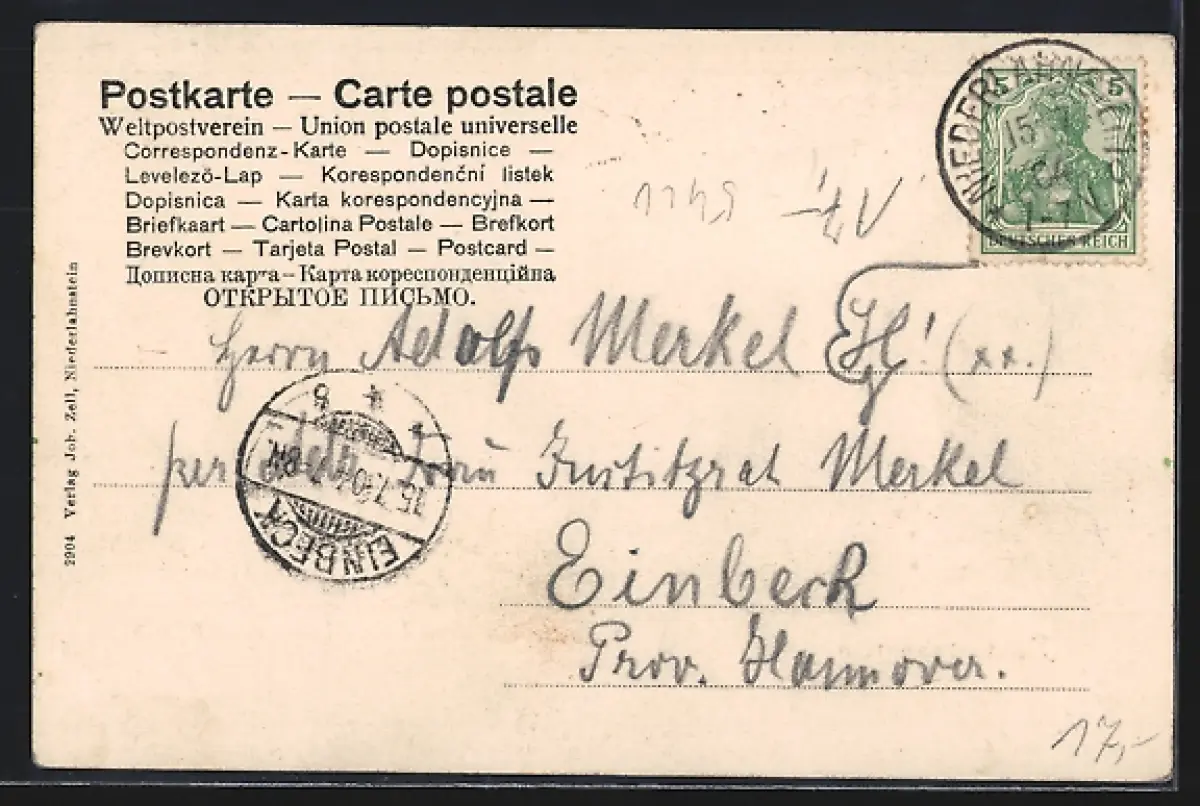 Postkarte — Carte postale
Weltpostverein — Union postale universelle
Correspondenz-Karte — Dopisnice —
Levelező-Lap — Korespondenční listek
Dopisnica — Karta korespondencyjna —
Briefkaart — Cartolina Postale — Brefkort
Brevkort — Tarjeta Postal — Postcard —
Дописна карта — Карта кореспонденційна
ОТКРЫТОЕ ПИСЬМО.
NIEDERLAHNSTEIN
15
04
5 5
DEUTSCHES REICH
Herrn Adolf Merkel (xx.)
per Adr. Frau Justitzrat Merkel
Einbeck
Prov. Hannover.
EINBECK
15.7.04
2904 Verlag Joh. Zell, Niederlahnstein
17,-